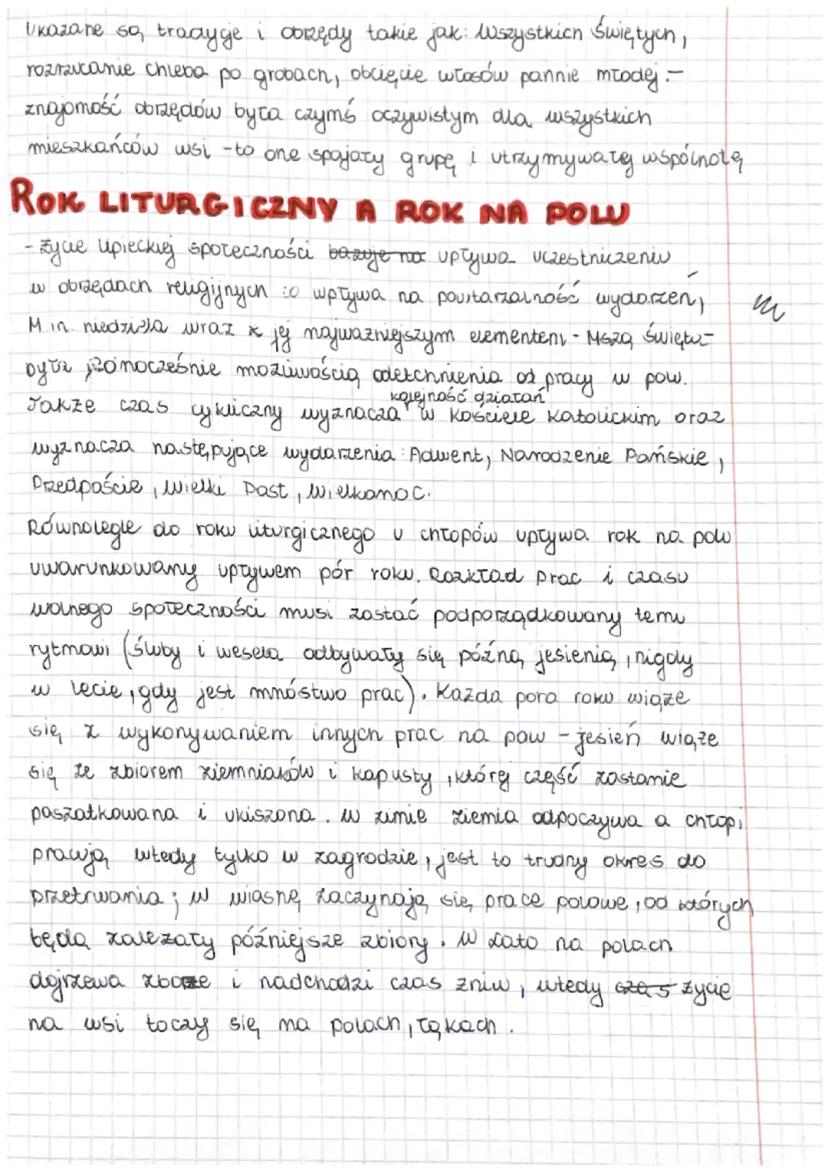 Ukazane są tradycje i obrzędy takie jak: Wszystkich Świętych,
rozrzucanie chleba po grobach, obcięcie włosów pannie młodej -
znajomość obrzędów była czymś oczywistym dla wszystkich
mieszkańców wsi - to one spajały grupę i utrzymywałey wspólnotę
ROK LITURGICZNY A ROK NA POLU
- życie lipieckiej społeczności bazuje na upływa uczestniczeniu
w obrzędach religijnych co wpływa na powtarzalność wydarzeń,
M.in. niedziela wraz z jej najważniejszym elementem - Mszą Świętą -
była jednocześnie możliwością odetchnienia od pracy w polu.
kolejność działań
Także czas cykliczny wyznacza w kościele katolickim oraz
wyznacza następujące wydarzenia: Adwent, Narodzenie Pańskie,
Przedpoście, Wielki Post, Wielkanoc.
Równolegle do roku liturgicznego u chłopów upływa rok na polu
uwarunkowany upływem pór roku. Rozkład prac i czasu
wolnego społeczności musi zostać podporządkowany temu
rytmowi (śluby i wesela odbywały się późną jesienią, nigdy
w lecie, gdy jest mnóstwo prac). Każda pora roku wiąże
się z wykonywaniem innych prac na polu - jesień wiąże
się ze zbiorem ziemniaków i kapusty, której część zostanie
poszatkowana i ukiszona. W zimie ziemia odpoczywa a chłopi
pracują wtedy tylko w zagrodzie, jest to trudny okres do
przetrwania; w wiosnę zaczynają się prace polowe, od których
będą zależały późniejsze zbiory. W lato na polach
dojrzewa zboże i nadchodzi czas żniw, wtedy czas życie
na wsi toczy się na polach, łąkach.